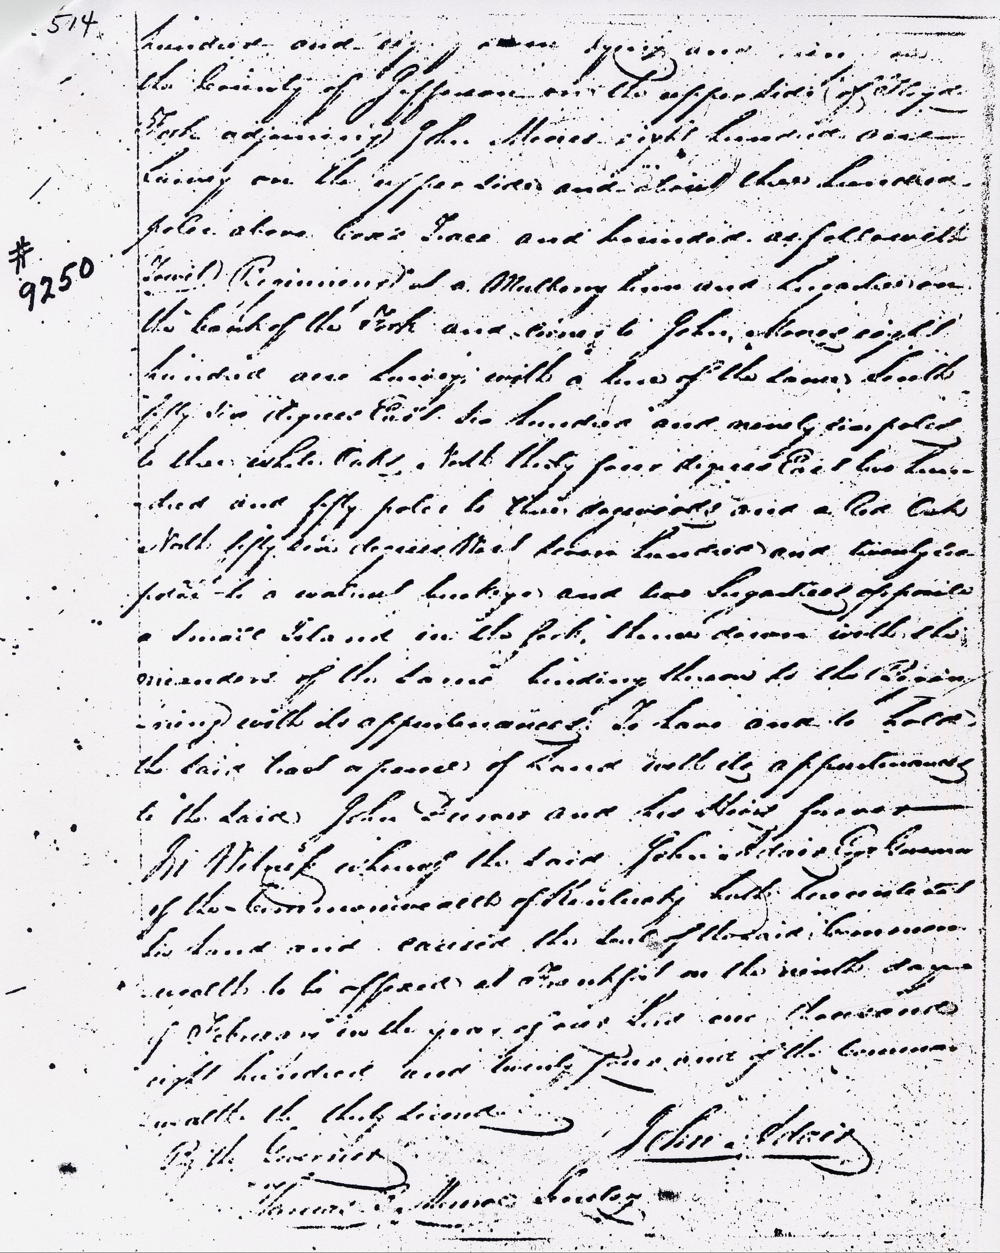 514
hundred and and
the County of Jefferson on the upper side of Floyds
Fork adjoining John Moores eight hundred acre
survey on the upper side and about three hundred
poles above Trace and bounded as followeth
# 9250
Towit, Beginning at a Mulberry and on
the bank of the Fork and corner to John Moores eight
hundred acre survey with a line of the same South
fifty six degrees East six hundred and ninety six poles
to three white Oaks, North thirty four degrees East two hun-
-dred and fifty poles to three dogwoods and a Red Oak
North fifty six degrees West seven hundred and twenty six
poles to a walnut buckeye and two Sugartrees opposite
a small Island in the fork, thence down with the
meanders of the same binding thereon to the Begin
-ning with its appurtenances: To have and to hold
the said tract or parcel of Land with its appurtenances
to the said John and his Heirs forever
In Witness whereof the said John Adair Esqr Governor
of the Commonwealth of Kentucky hath hereunto set
his hand and caused the Seal of the said Common
-wealth to be affixed at Frankfort on the ninth day
of February in the year of our Lord one thousand
eight hundred and twenty four and of the Common
-wealth the thirty second
John Adair
By the Governor
Thomas B. Monroe Secretary